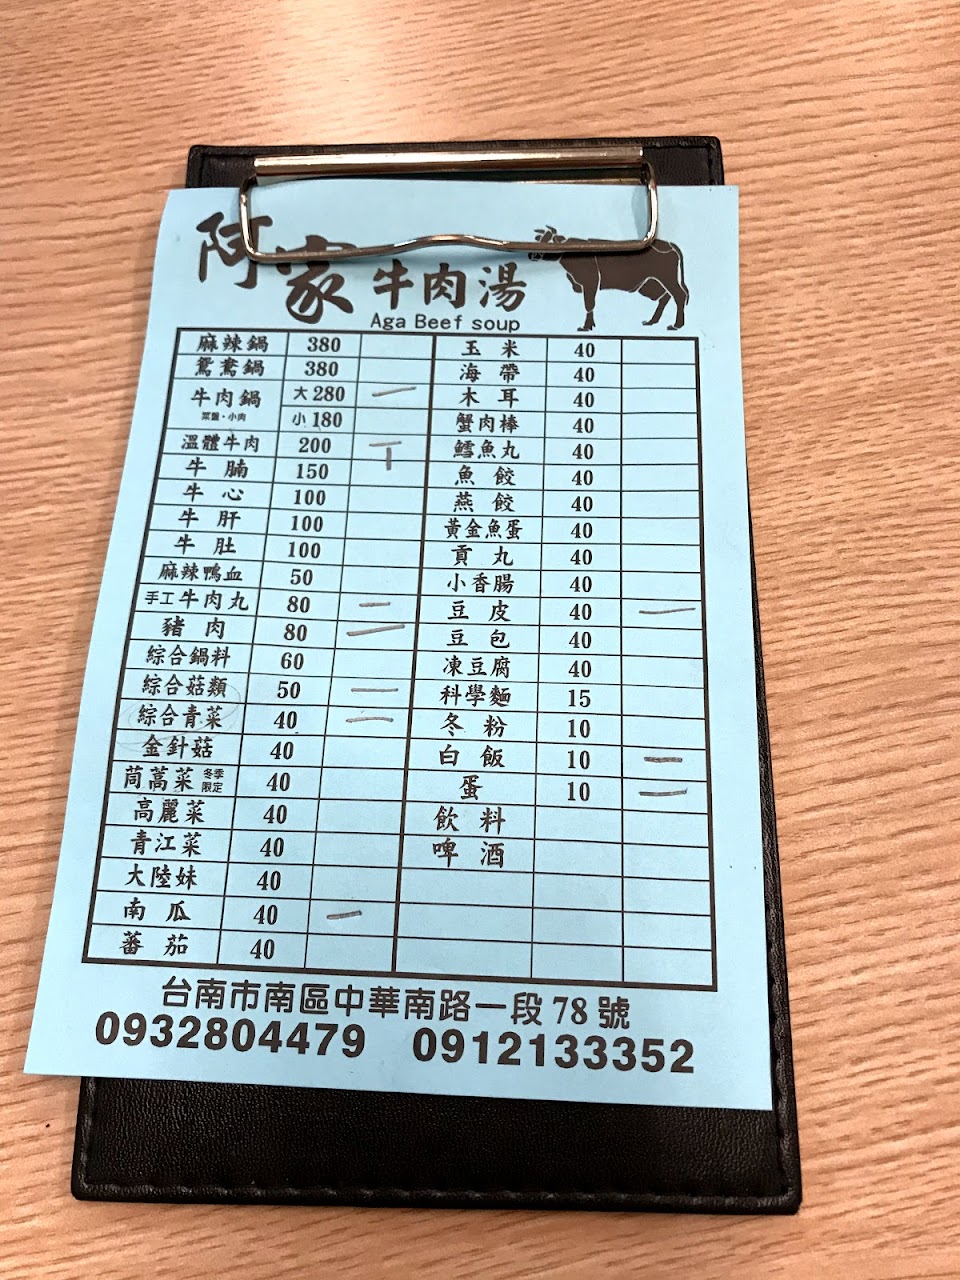 阿家牛肉湯
Aga Beef soup
麻辣鍋 380
鴛鴦鍋 380
牛肉鍋 大280 一
菜盤・小肉 小180
溫體牛肉 200 丅
牛腩 150
牛心 100
牛肝 100
牛肚 100
麻辣鴨血 50
手工牛肉丸 80 一
豬肉 80 一
綜合鍋料 60
綜合菇類 50 一
綜合青菜 40 一
金針菇 40
茼蒿菜 冬季限定 40
高麗菜 40
青江菜 40
大陸妹 40
南瓜 40 一
蕃茄 40
玉米 40
海帶 40
木耳 40
蟹肉棒 40
鱈魚丸 40
魚餃 40
燕餃 40
黃金魚蛋 40
貢丸 40
小香腸 40
豆皮 40 一
豆包 40
凍豆腐 40
科學麵 15
冬粉 10
白飯 10 一
蛋 10 一
飲料
啤酒
台南市南區中華南路一段78號
0932804479 0912133352